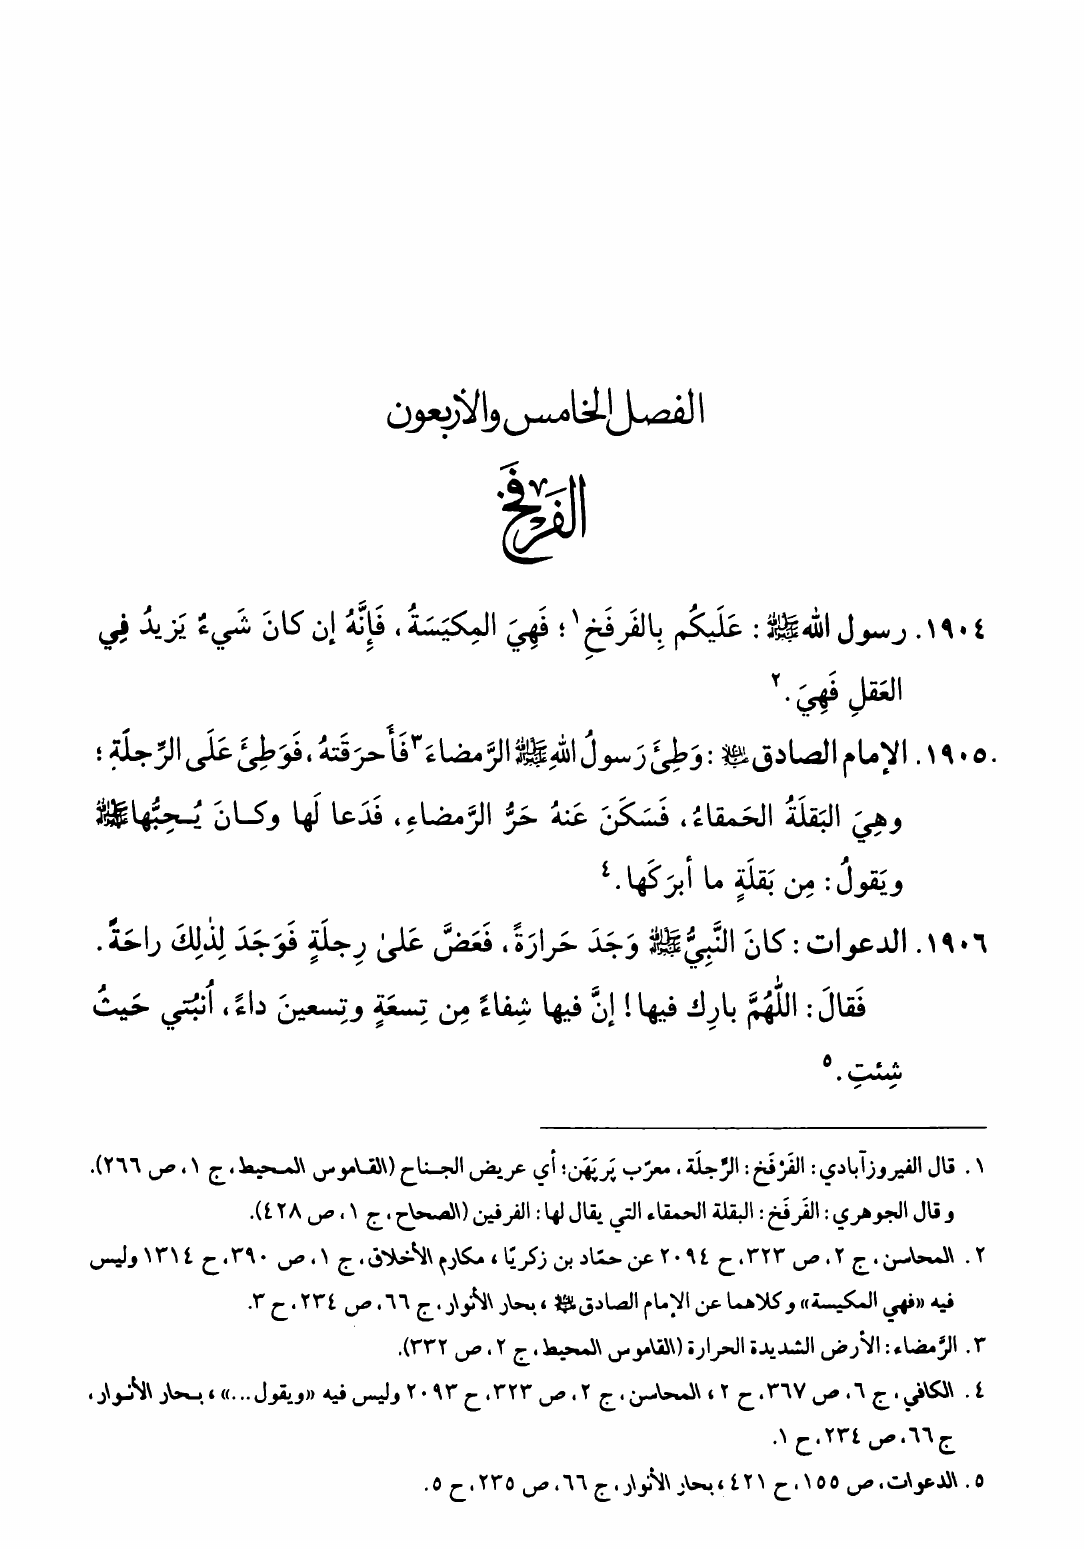 الفصل الخامس والأربعون
الفَرْفَخ
١٩٠٤. رسول الله ﷺ : عَلَيكُم بِالفَرفَخِ١ ؛ فَهِيَ المِكيَسَةُ، فَإِنَّهُ إن كانَ شَيءٌ يَزيدُ فِي
العَقلِ فَهِيَ.٢
١٩٠٥. الإمام الصادق ﷺ : وَطِئَ رَسولُ اللهِ ﷺ الرَّمضاءَ٣ فَأَحرَقَتهُ، فَوَطِئَ عَلَى الرِّجلَةِ ؛
وهِيَ البَقلَةُ الحَمقاءُ، فَسَكَنَ عَنهُ حَرُّ الرَّمضاءِ، فَدَعا لَها وكـانَ يُـحِبُّها ﷺ
ويَقولُ : مِن بَقلَةٍ ما أبرَكَها.٤
١٩٠٦. الدعوات : كانَ النَّبِيُّ ﷺ وَجَدَ حَرارَةً، فَعَضَّ عَلىٰ رِجلَةٍ فَوَجَدَ لِذٰلِكَ راحَةً.
فَقالَ : اللّٰهُمَّ بارِك فيها ! إنَّ فيها شِفاءً مِن تِسعَةٍ وتِسعينَ داءً، اُنبُتي حَيثُ
شِئتِ.٥
١. قال الفيروزآبادي : الفَرْفَخ : الرِّجلَة، معرّب پَرپَهَن؛ أي عريض الجـناح (القـاموس المـحيط، ج ١، ص ٢٦٦).
وقال الجوهري : الفَرفَخ : البقلة الحمقاء التي يقال لها : الفرفين (الصحاح، ج ١، ص ٤٢٨).
٢. المحاسن، ج ٢، ص ٣٢٣، ح ٢٠٩٤ عن حمّاد بن زكريّا، مكارم الأخلاق، ج ١، ص ٣٩٠، ح ١٣١٤ وليس
فيه «فهي المكيسة» وكلاهما عن الإمام الصادق ﷺ ، بحار الأنوار، ج ٦٦، ص ٢٣٤، ح ٣.
٣. الرَّمضاء : الأرض الشديدة الحرارة (القاموس المحيط، ج ٢، ص ٣٣٢).
٤. الكافي، ج ٦، ص ٣٦٧، ح ٢، المحاسن، ج ٢، ص ٣٢٣، ح ٢٠٩٣ وليس فيه «ويقول...»، بـحار الأنـوار،
ج ٦٦، ص ٢٣٤، ح ١.
٥. الدعوات، ص ١٥٥، ح ٤٢١، بحار الأنوار، ج ٦٦، ص ٢٣٥، ح ٥.